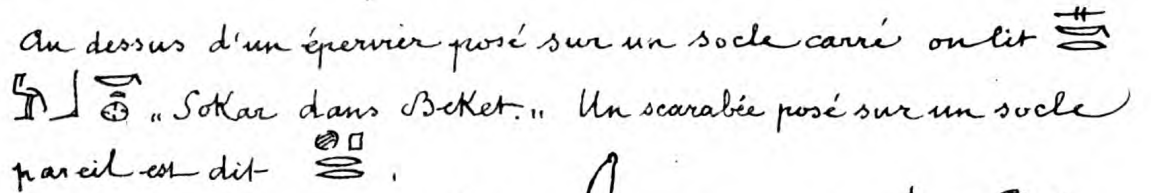 Au dessus d'un épervier posé sur un socle carré on lit 𓊃𓎡𓂋
𓅓𓃀𓎡𓏏𓊖 „Sokar dans Beket.„ Un scarabée posé sur un socle
pareil est dit 𓐍𓊪𓂋𓂋.